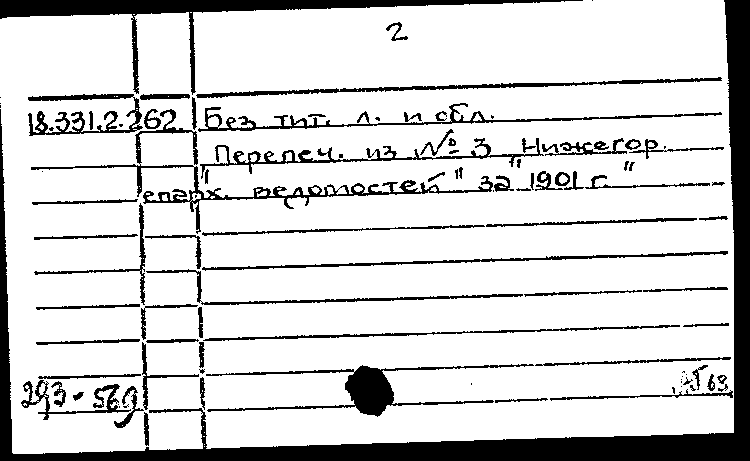 2
18.331.2.262. Без тит. л. и обл.
"Перепеч. из № 3 "Нижегор.
епарх. ведомостей" за 1901 г."
293-569
АТ 63